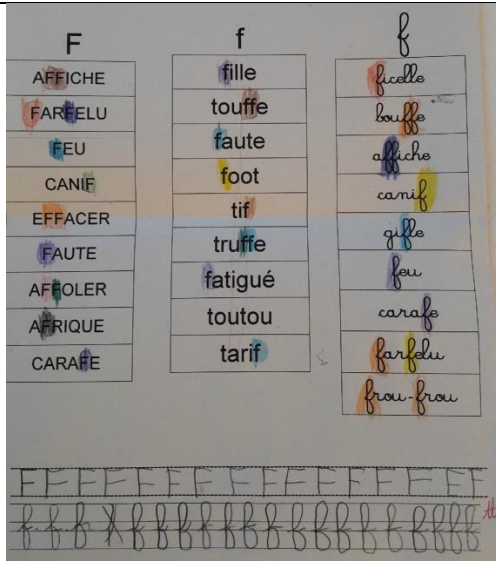 F
AFFICHE
FARFELU
FEU
CANIF
EFFACER
FAUTE
AFFOLER
AFRIQUE
CARAFE
f
fille
touffe
faute
foot
tif
truffe
fatigué
toutou
tarif
f
ficelle
bouffe
affiche
canif
gifle
feu
carafe
farfelu
frou-frou
F F F F F F F F F F F F F F F F
f f f X f f f f f f f f f f f f f f f